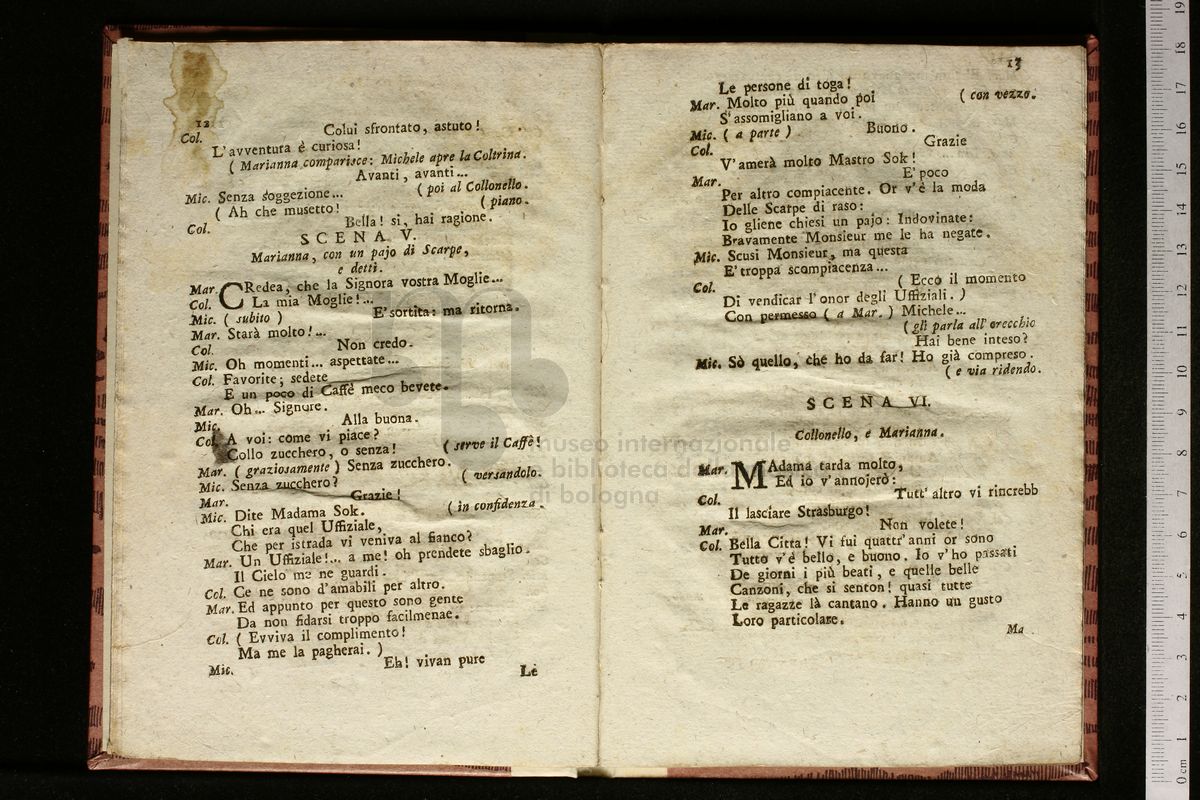 12
Colui sfrontato, astuto!
Col.
L'avventura è curiosa!
( Marianna comparisce: Michele apre la Coltrina.
Avanti, avanti...
Mic. Senza soggezione... ( poi al Collonello.
( Ah che musetto! ( piano.
Col. Bella! si, hai ragione.
SCENA V.
Marianna, con un pajo di Scarpe,
e detti.
Mar. CRedea, che la Signora vostra Moglie...
Col. La mia Moglie!...
Mic. ( subito ) E' sortita: ma ritorna.
Mar. Starà molto!...
Col. Non credo.
Mic. Oh momenti... aspettate...
Col. Favorite; sedete
E un poco di Caffè meco bevete.
Mar. Oh... Signore.
Mic. Alla buona.
Col. A voi: come vi piace?
Collo zucchero, o senza! ( serve il Caffè!
Mar. ( graziosamente ) Senza zucchero.
Mic. Senza zucchero? ( versandolo.
Mar. Grazie!
Mic. Dite Madama Sok. ( in confidenza.
Chi era quel Uffiziale,
Che per istrada vi veniva al fianco?
Mar. Un Uffiziale!... a me! oh prendete sbaglio.
Il Cielo me ne guardi.
Col. Ce ne sono d'amabili per altro.
Mar. Ed appunto per questo sono gente
Da non fidarsi troppo facilmenae.
Col. ( Evviva il complimento!
Ma me la pagherai. )
Mic. Eh! vivan pure
Le
13
Le persone di toga!
Mar. Molto più quando poi ( con vezzo.
S'assomigliano a voi.
Mic. ( a parte ) Buono.
Col. Grazie
V'amerà molto Mastro Sok!
Mar. E' poco
Per altro compiacente. Or v'è la moda
Delle Scarpe di raso:
Io gliene chiesi un pajo: Indovinate:
Bravamente Monsieur me le ha negate.
Mic. Scusi Monsieur, ma questa
E' troppa scompiacenza...
Col. ( Ecco il momento
Di vendicar l'onor degli Uffiziali. )
Con permesso ( a Mar. ) Michele...
( gli parla all' orecchio
Hai bene inteso?
Mic. Sò quello, che ho da far! Ho già compreso.
( e via ridendo.
SCENA VI.
Collonello, e Marianna.
Mar. MAdama tarda molto,
Ed io v'annojerò:
Col. Tutt' altro vi rincrebb
Il lasciare Strasburgo!
Mar. Non volete!
Col. Bella Citta! Vi fui quattr'anni or sono
Tutto v'è bello, e buono. Io v'ho passati
De giorni i più beati, e quelle belle
Canzoni, che si senton! quasi tutte
Le ragazze là cantano. Hanno un gusto
Loro particolare.
Ma
museo internazionale
e biblioteca de
di bologna
0 cm 1 2 3 4 5 6 7 8 9 10 11 12 13 14 15 16 17 18 19